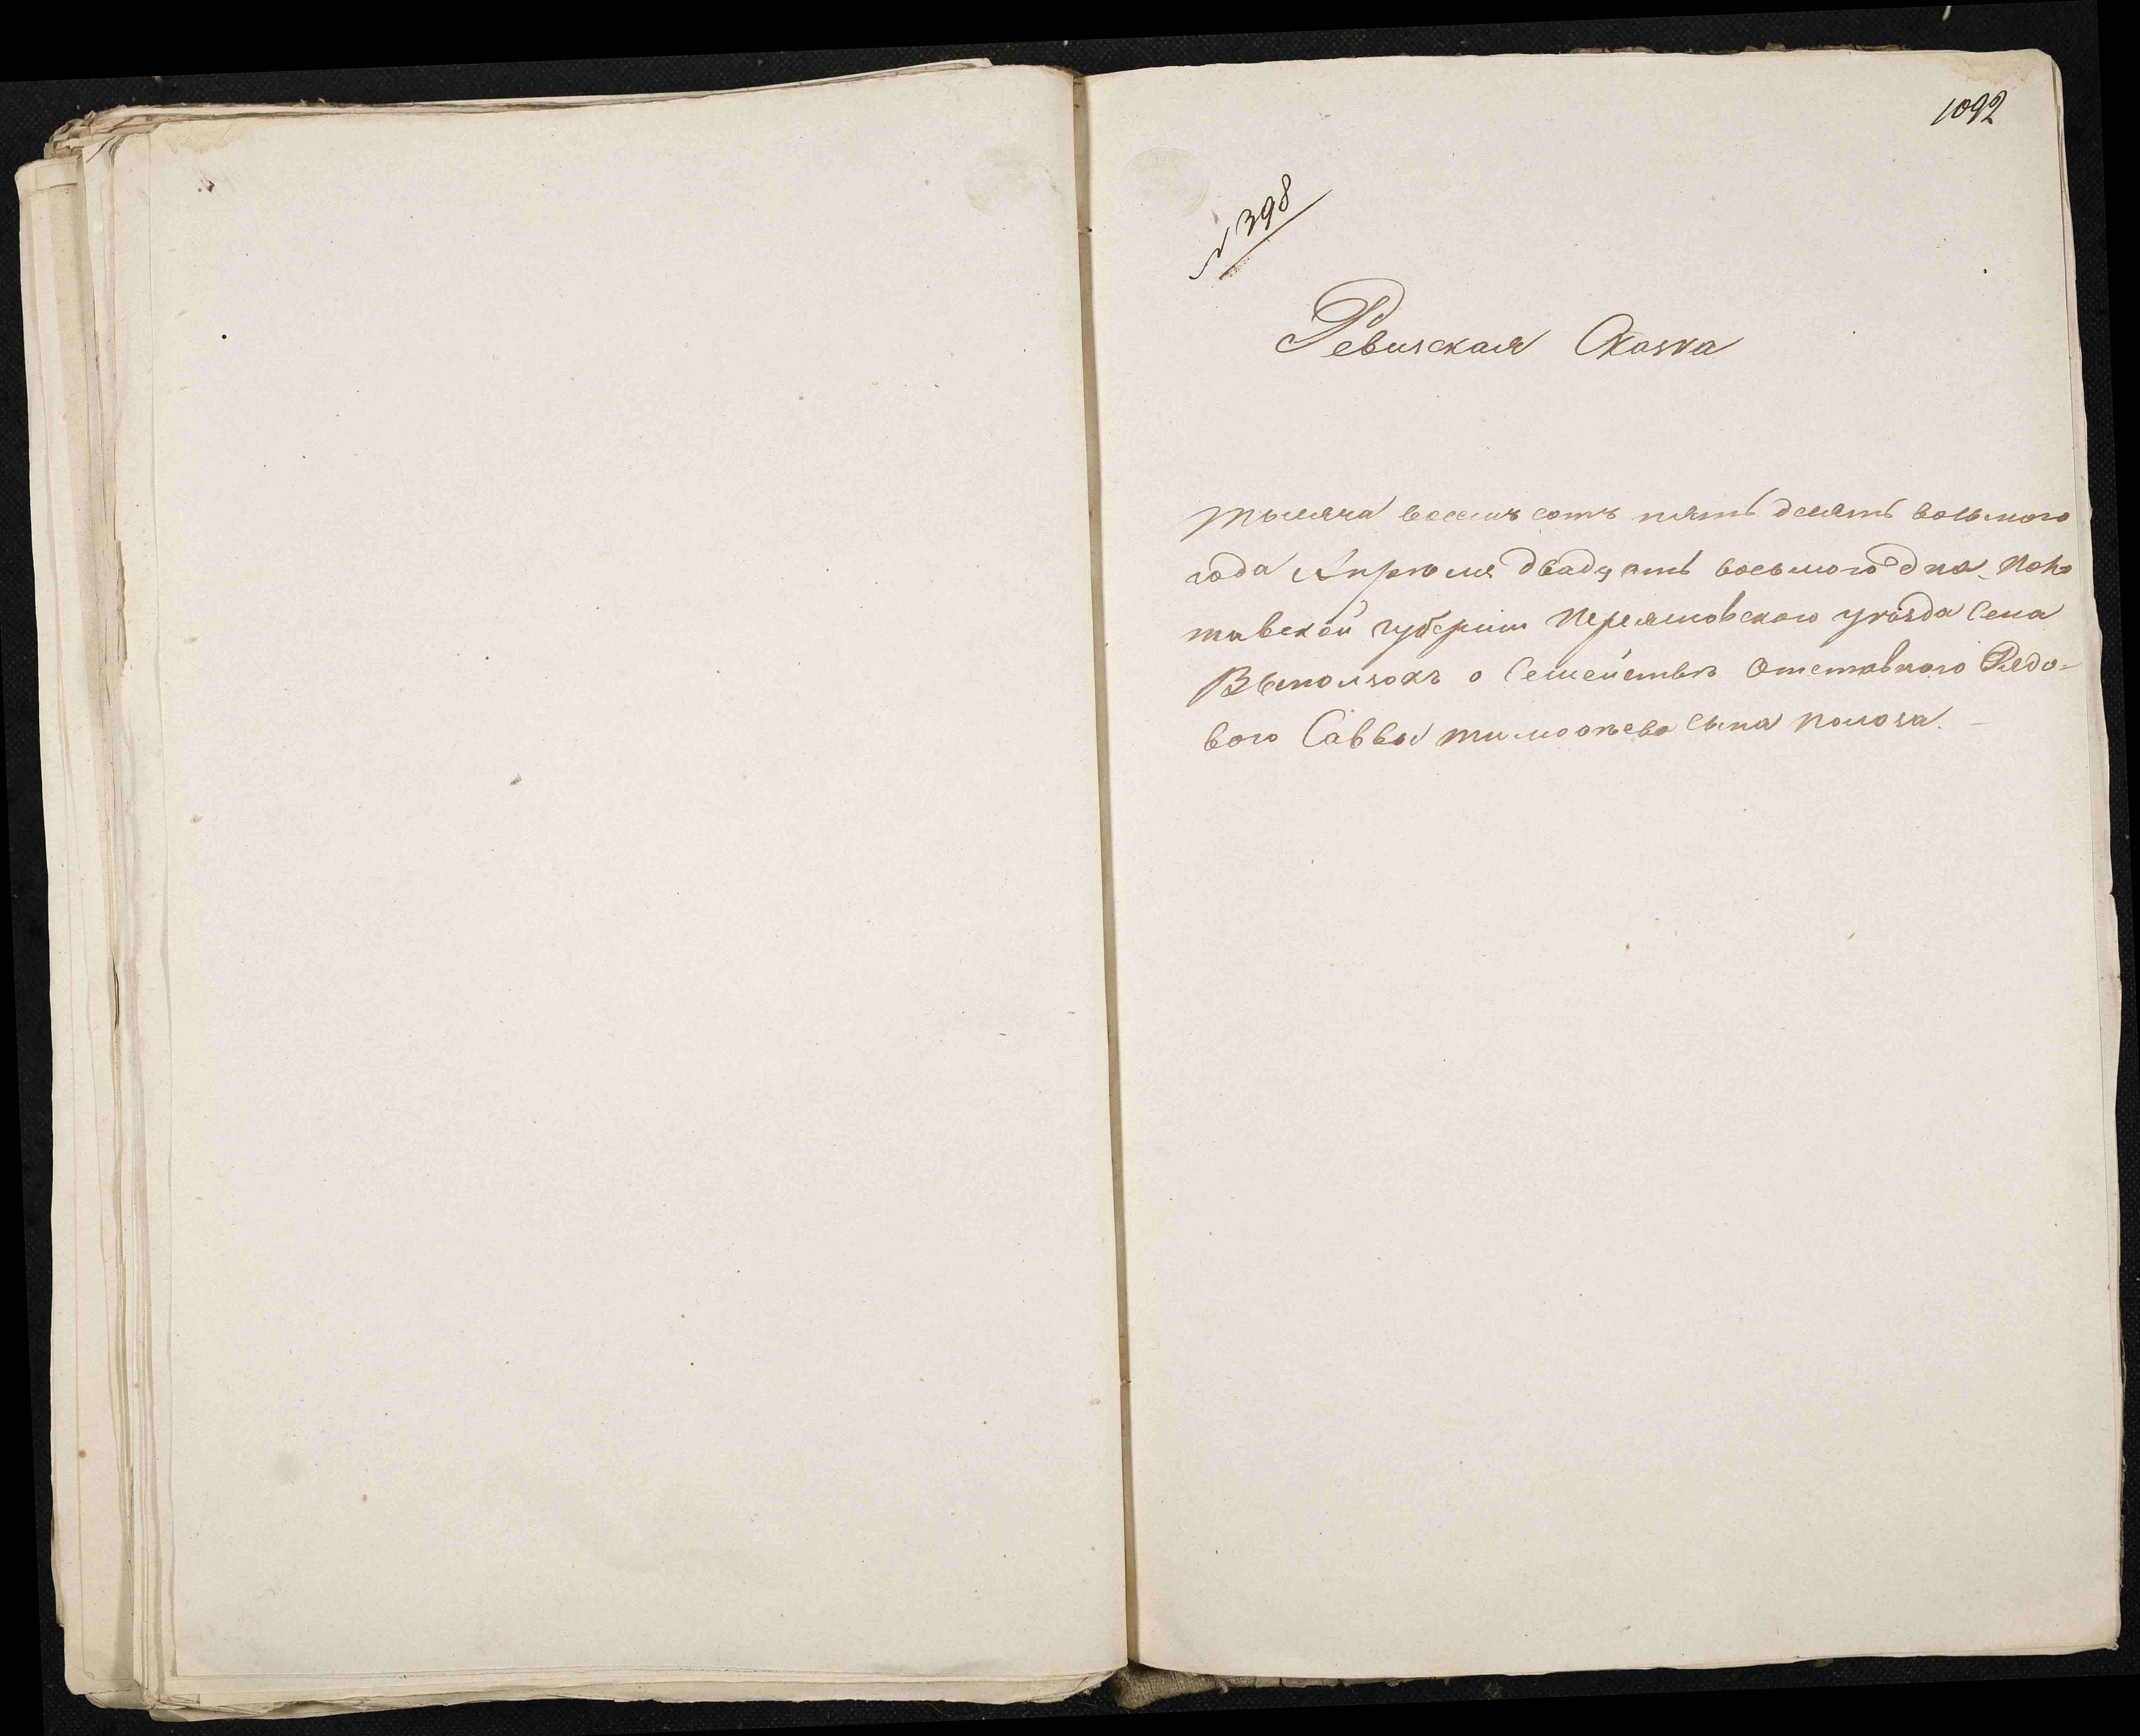 1092
№ 398
Ревизская Сказка
Тысяча восемь сотъ пять десять восьмого
года Апреля двадцять восьмого дня, Пол
тавской губернии Переяславского уезда Села
Выползокъ о Семействе Отставного Рядо-
вого Саввы Тимофеева сына Полоза. –